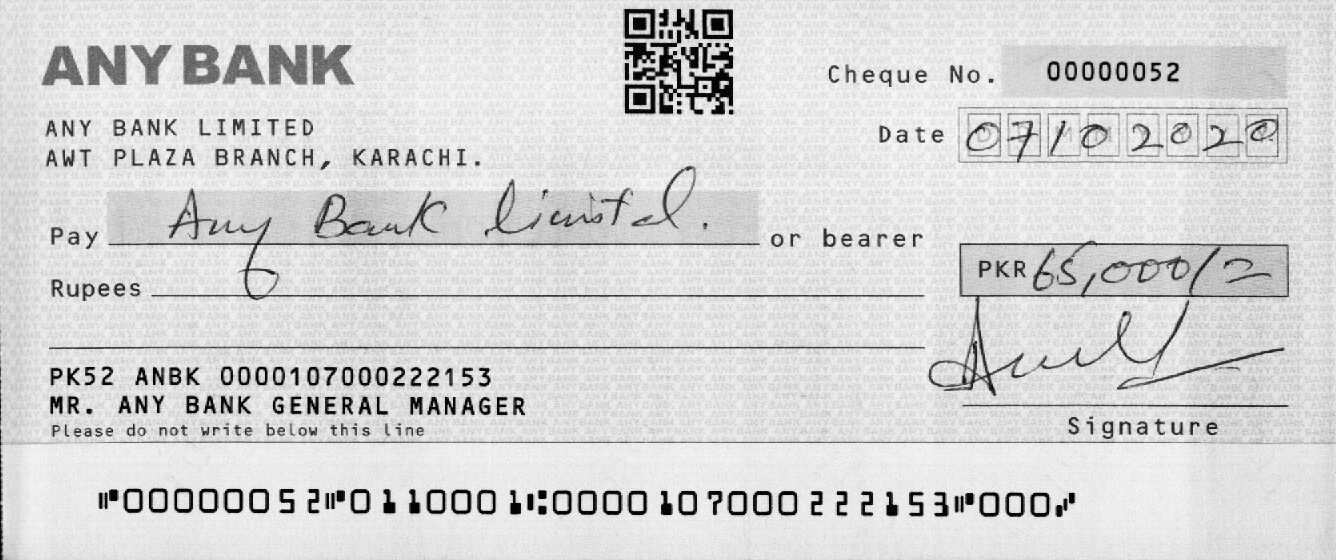 ANY BANK
Cheque No. 00000052
ANY BANK LIMITED
Date 07102020
AWT PLAZA BRANCH, KARACHI.
Pay Any Bank limited. or bearer
Rupees
PKR 65,000/=
PK52 ANBK 0000107000222153
MR. ANY BANK GENERAL MANAGER
Please do not write below this line
Signature
⑈00000052⑈0110001⑆0000107000222153⑈000⑇